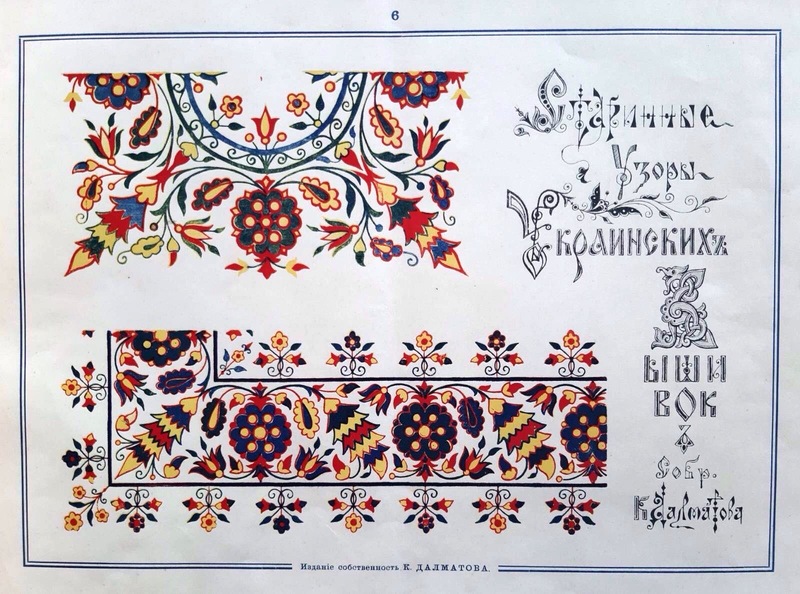 6
Старинные
Узоры
Украинскихъ
В
ыши
вок
Собр.
К Далматова
Изданіе собственность К. ДАЛМАТОВА.